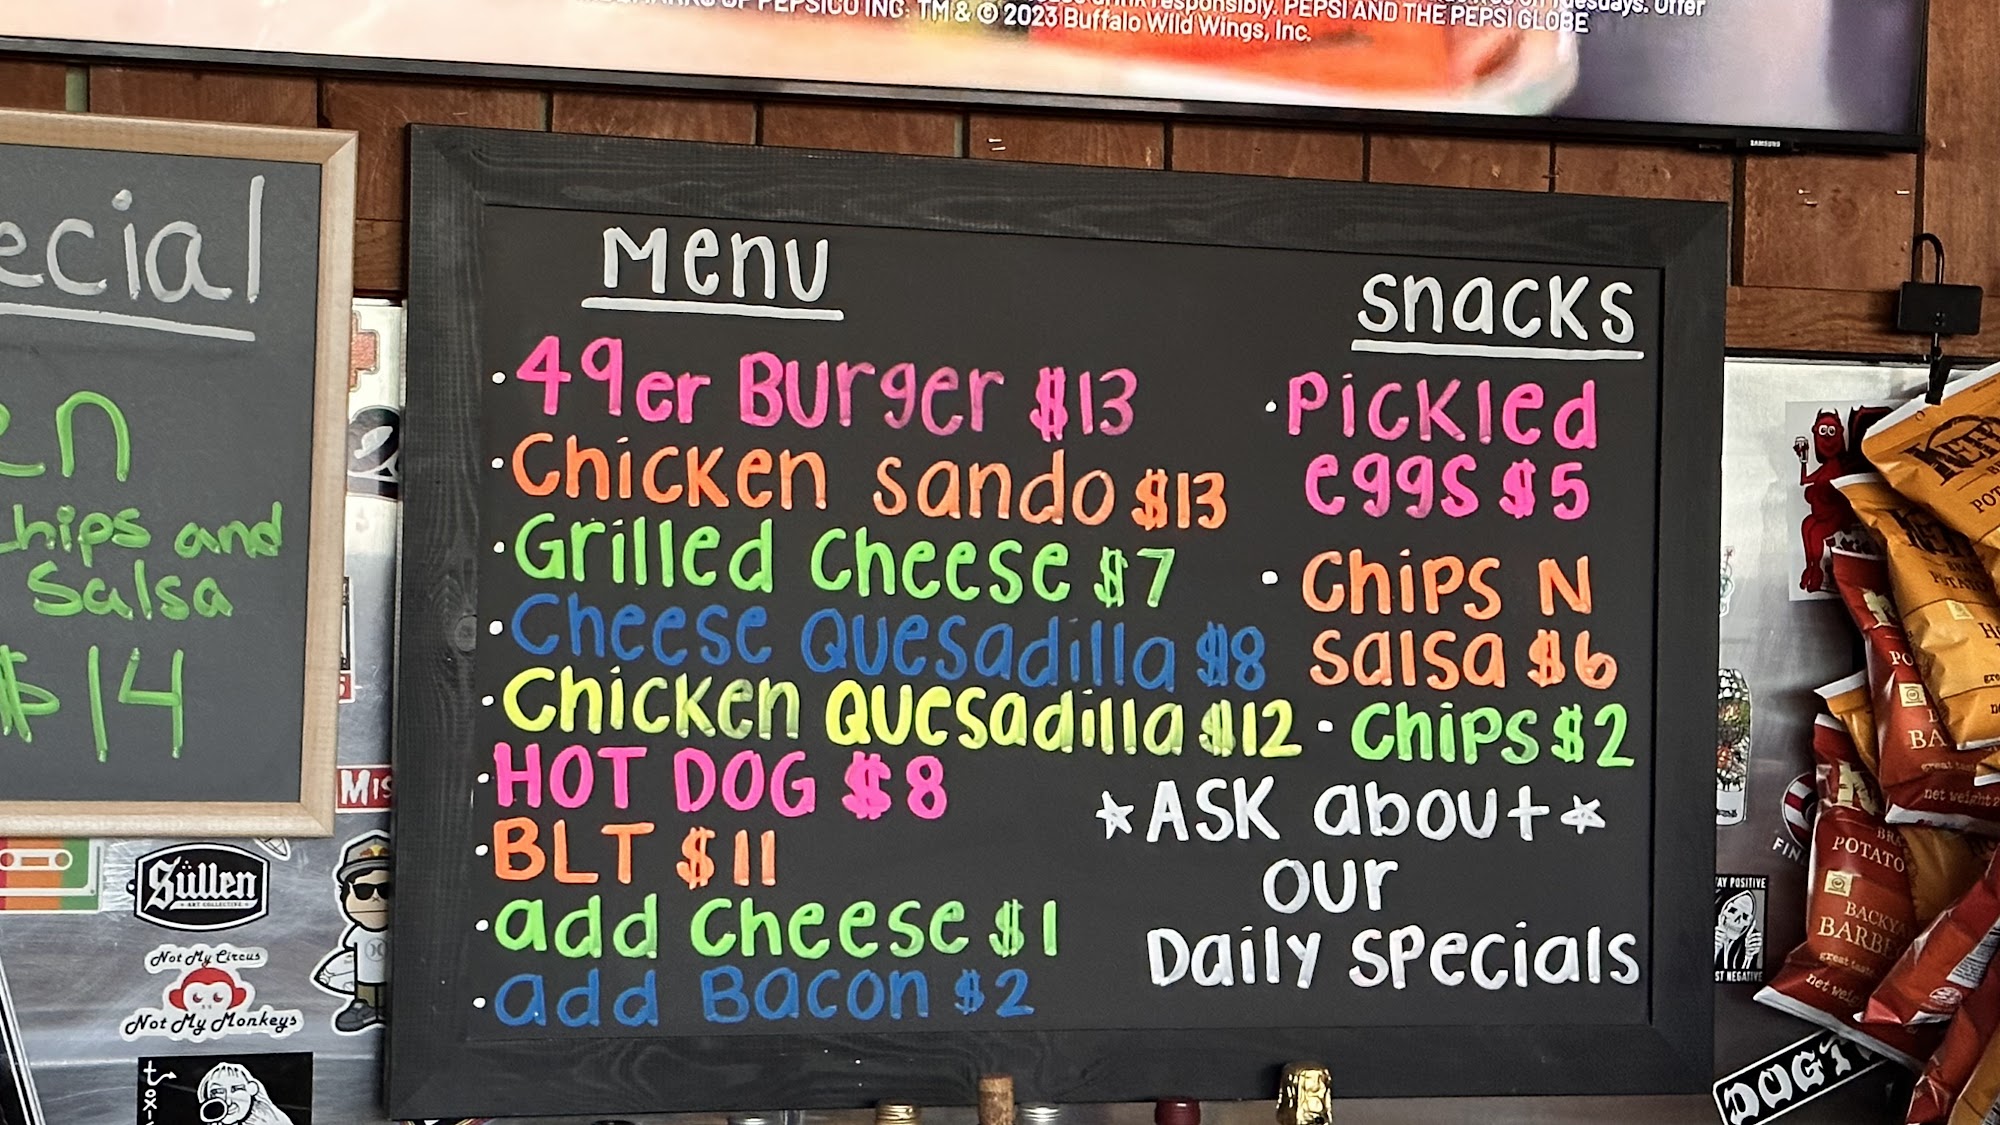 responsibly. PEPSI AND THE PEPSI GLOBE
OF PEPSICO INC. TM & © 2023 Buffalo Wild Wings, Inc.
Offer
SAMSUNG
ecial
en
chips and
Salsa
$14
Menu
• 49er Burger $13
• Chicken Sando $13
• Grilled Cheese $7
• Cheese Quesadilla $8
• Chicken Quesadilla $12
• HOT DOG $8
• BLT $11
• add Cheese $1
• add Bacon $2
Snacks
• Pickled
eggs $5
• Chips N
Salsa $6
• Chips $2
*ASK about*
our
Daily Specials
MIS
Süllen
ART COLLECTIVE
Not My Circus
Not My Monkeys
FIN
AY POSITIVE
ST NEGATIVE
DOGT
POTATO
BACKYA
BARBE
great taste
net weight